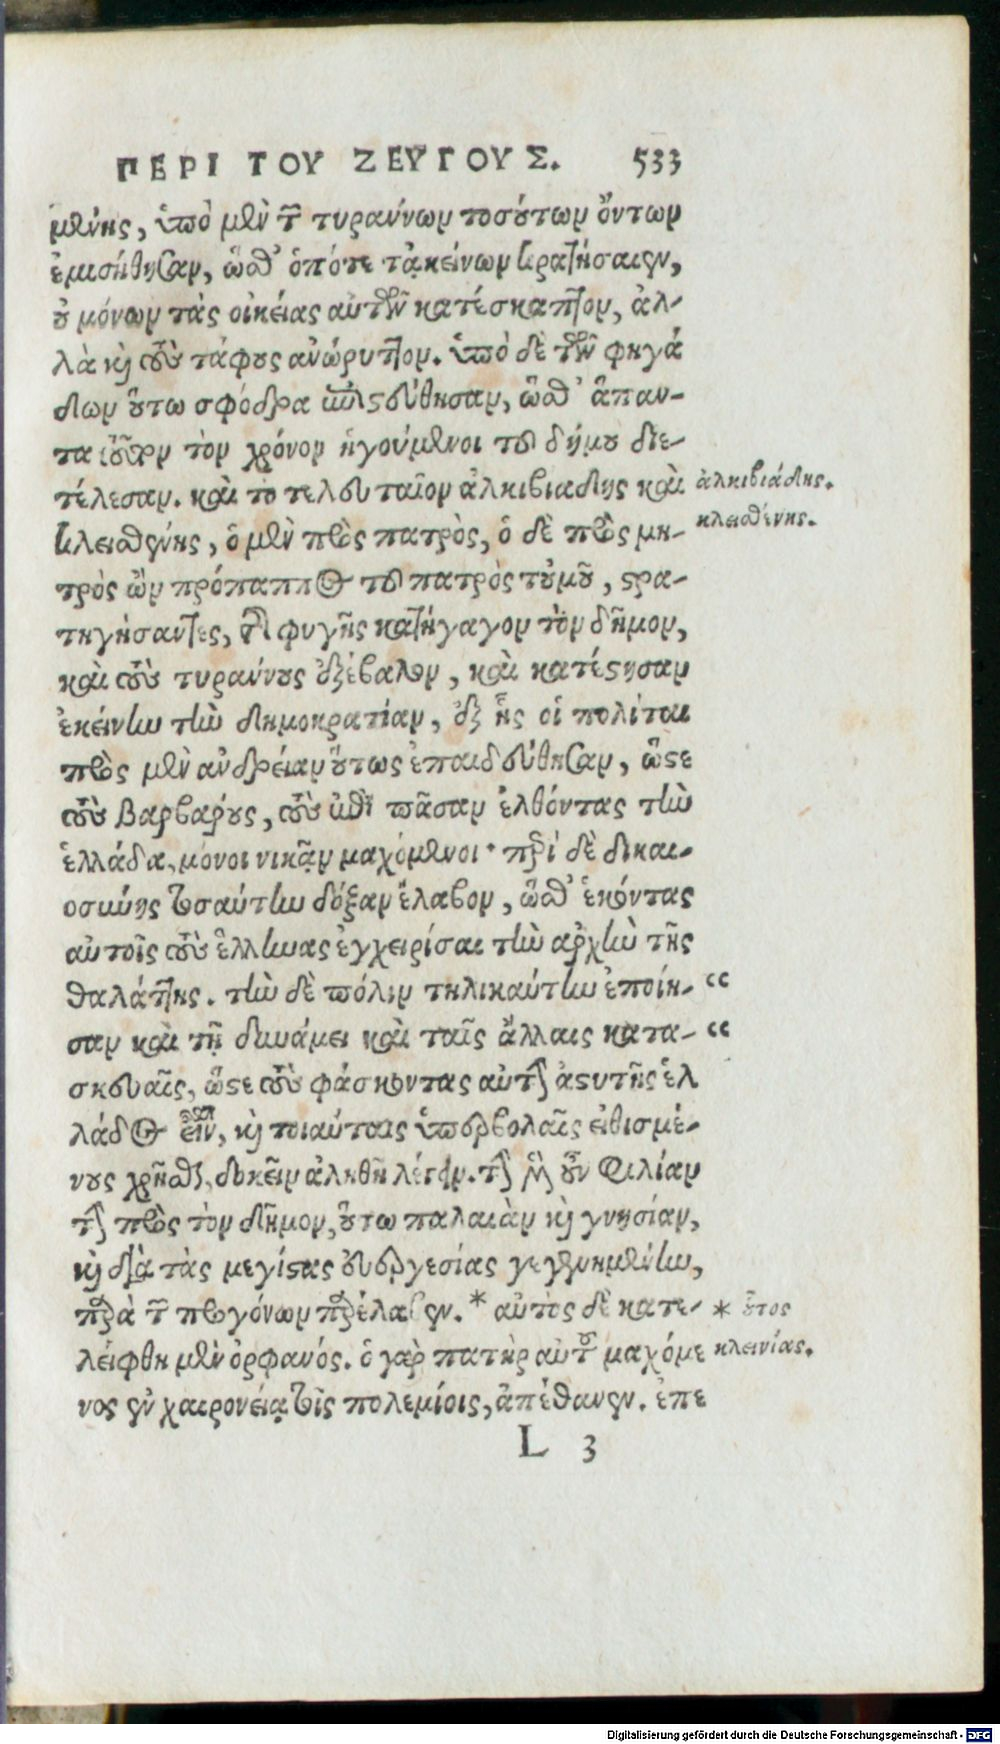 ΠΕΡΙ ΤΟΥ ΖΕΥΓΟΥΣ. 533
μένης, ὑπὸ μὲν τῶν τυράννων τοσούτων ὄντων
ἐμισήθησαν, ὥσθ' ὁπότε τἀκείνων κρατήσαιεν,
οὐ μόνων τὰς οἰκείας αὐτῶν κατέσκαπτον, ἀλ-
λὰ καὶ τοὺς τάφους ἀνώρυττον. ὑπὸ δὲ τῶν φηγά
δων οὕτω σφόδρα ἐπιστεύθησαν, ὥσθ' ἅπαν-
τα τοῦτον τὸν χρόνον ἡγούμενοι τοῦ δήμου διε-
τέλεσαν. καὶ τὸ τελευταῖον ἀλκιβιάδης καὶ
ἀλκιβιάδης.
κλεισθένης, ὁ μὲν πρὸς πατρὸς, ὁ δὲ πρὸς μη-
κλεισθένης.
τρὸς ὢν πρόπαππος τοῦ πατρὸς τοὐμοῦ, στρα-
τηγήσαντες, τῆς φυγῆς κατήγαγον τὸν δῆμον,
καὶ τοὺς τυράννους ἐξέβαλον, καὶ κατέστησαν
ἐκείνην τὴν δημοκρατίαν, ἐξ ἧς οἱ πολῖται
πρὸς μὲν ἀνδρείαν οὕτως ἐπαιδεύθησαν, ὥστε
τοὺς βαρβάρους, τοὺς ἐπὶ πᾶσαν ἐλθόντας τὴν
ἑλλάδα, μόνοι νικᾷν μαχόμενοι· περὶ δὲ δικαι-
οσύνης τοσαύτην δόξαν ἔλαβον, ὥσθ' ἑκόντας
αὐτοῖς τοὺς ἕλληνας ἐγχειρίσαι τὴν ἀρχὴν τῆς
θαλάττης. τὴν δὲ πόλιν τηλικαύτην ἐποίη- “
σαν καὶ τῇ δυνάμει καὶ ταῖς ἄλλαις κατα- “
σκευαῖς, ὥστε τοὺς φάσκοντας αὐτὴν ἄστυ τῆς ἑλ
λάδος εἶναι, καὶ τοιαύταις ὑπερβολαῖς εἰθισμέ-
νους χρῆσθαι, δοκεῖν ἀληθῆ λέγειν. τὴν μὲν οὖν φιλίαν
τὴν πρὸς τὸν δῆμον, οὕτω παλαιὰν καὶ γνησίαν,
καὶ διὰ τὰς μεγίστας εὐεργεσίας γεγενημένην,
παρὰ τῶν προγόνων παρέλαβεν. * αὐτὸς δὲ κατε-
* οὗτος
λείφθη μὲν ὀρφανός. ὁ γὰρ πατὴρ αὐτοῦ μαχόμε
κλεινίας.
νος ἐν χαιρονείᾳ τοῖς πολεμίοις, ἀπέθανεν. ἐπε
L 3
Digitalisierung gefördert durch die Deutsche Forschungsgemeinschaft - DFG